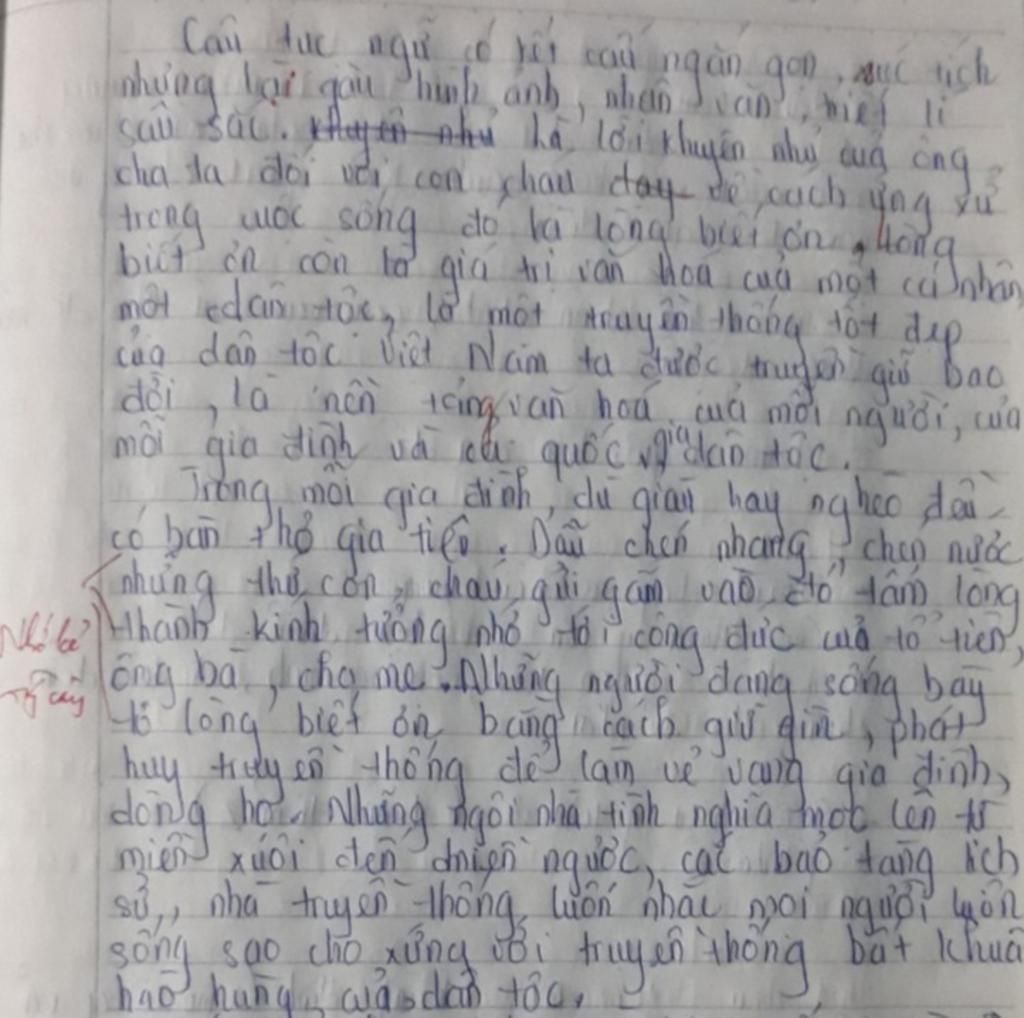 Câu tục ngữ có kết cấu ngắn gọn, xúc tích
nhưng lại giàu hình ảnh, nhân văn, triết lí
sâu sắc. khuyên như là lời khuyên nhủ của ông
cha ta đối với con cháu dạy về cách ứng xử
trong cuộc sống đó là lòng biết ơn, lòng
biết ơn còn là giá trị văn hoá của một cá nhân,
một dân tộc, là một truyền thống tốt đẹp
của dân tộc Việt Nam ta được truyền giữ bao
đời, là nền tảng văn hoá của mỗi người, của
mỗi gia đình và cả quốc gia dân tộc.
Trong mỗi gia đình, dù giàu hay nghèo, đều
có bàn thờ gia tiên. Dẫu chén nhang, chén nước
nhưng thứ con, cháu gửi gắm vào đó tấm lòng
thành kính tưởng nhớ tới công đức của tổ tiên,
ông bà, cha mẹ. Những người đang sống bày
tỏ lòng biết ơn bằng cách giữ gìn, phát
huy truyền thống để làm vẻ vang gia đình,
dòng họ. Những ngôi nhà tình nghĩa mọc lên từ
miền xuôi đến miền ngược, các bảo tàng lịch
sử, nhà truyền thống luôn nhắc mọi người luôn
sống sao cho xứng với truyền thống bất khuất
hào hùng của dân tộc.